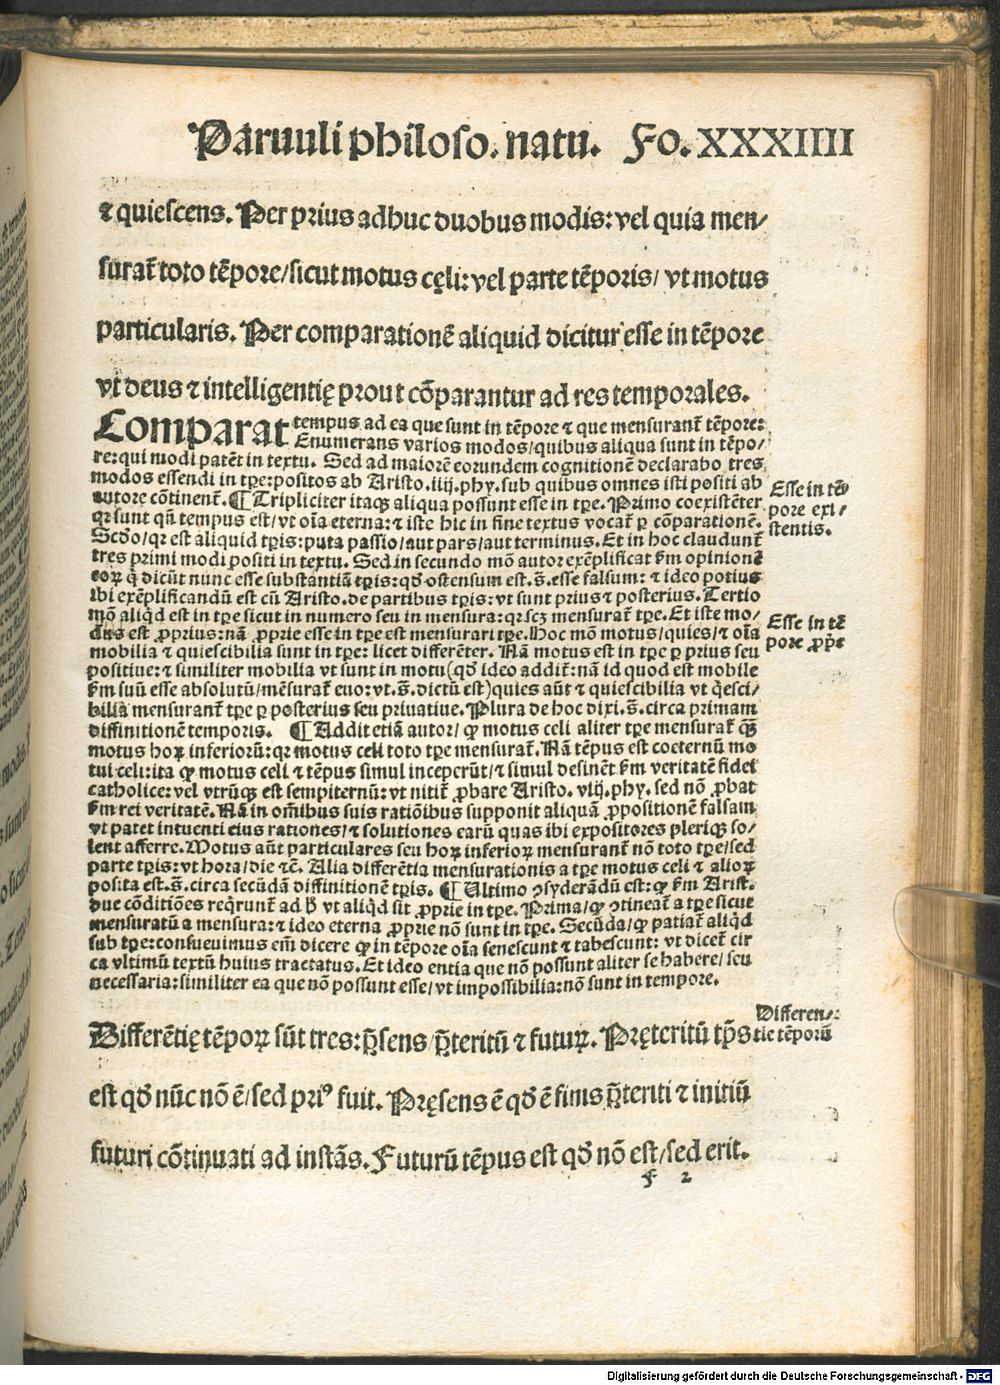 Paruuli philoso. natu. Fo. XXXIIII
⁊ quiescens. Per prius adhuc duobus modis: vel quia men/
surat᷑ toto tēpore/ sicut motus cęli: vel parte tēporis/ vt motus
particularis. Per comparationē aliquid dicitur esse in tēpore
vt deus ⁊ intelligentię prout cōparantur ad res temporales.
Comparat tempus ad ea que sunt in tēpore ⁊ que mensurant᷑ tēpore:
Enumerans varios modos/ quibus aliqua sunt in tēpo/
re: qui modi patēt in textu. Sed ad maiorē eorundem cognitionē declarabo tres
modos essendi in tꝑe: positos ab Aristo. iiij. phy. sub quibus omnes isti positi ab
autore cōtinent᷑. ¶ Tripliciter itaqꝫ aliqua possunt esse in tꝑe. Primo coexistēter
qꝛ sunt qñ tempus est/ vt oīa eterna: ⁊ iste hic in fine textus vocat᷑ ꝑ cōparationē.
Scďo/ qꝛ est aliquid tꝑis: puta passio/ aut pars/ aut terminus. Et in hoc claudunt᷑
tres primi modi positi in textu. Sed in secundo mō autor exēplificat fm opinionē
eoꝝ q̇ dicūt nunc esse substantiā tꝑis: qď ostensum est. s̄. esse falsum: ⁊ ideo potius
ibi exēplificandū est cū Aristo. de partibus tꝑis: vt sunt prius ⁊ posterius. Tertio
mō aliqď est in tꝑe sicut in numero seu in mensura: qꝛ scꝫ mensurat᷑ tꝑe. Et iste mo/
dus est ꝓprius: nā ꝓprie esse in tꝑe est mensurari tꝑe. Hoc mō motus/ quies/ ⁊ oīa
mobilia ⁊ quiescibilia sunt in tꝑe: licet differēter. Nā motus est in tꝑe ꝑ prius seu
positiue: ⁊ similiter mobilia vt sunt in motu (qď ideo addit᷑: nā id quod est mobile
fm suū esse absolutū/ mēsurat᷑ euo: vt. s̄. dictū est) quies aūt ⁊ quiescibilia vt q̇esci/
bilia mensurant᷑ tꝑe ꝑ posterius seu priuatiue. Plura de hoc dixi. s̄. circa primam
diffinitionē temporis. ¶ Addit etiā autor/ ꝙ motus celi aliter tꝑe mensurat᷑ qꝫ̄
motus hoꝝ inferiorū: qꝛ motus celi toto tꝑe mensurat᷑. Nā tēpus est coeternū mo
tui celi: ita ꝙ motus celi ⁊ tēpus simul inceperūt/ ⁊ simul desinēt fm veritatē fidei
catholice: vel vtrūqꝫ est sempiternū: vt nitit᷑ ꝓbare Aristo. viij. phy. sed nō ꝓbat
fm rei veritatē. Nā in oīnibus suis ratiōibus supponit aliquā ꝓpositionē falsam
vt patet intuenti eius rationes/ ⁊ solutiones earū quas ibi expositores pleriqꝫ so/
lent afferre. Motus aūt particulares seu hoꝝ inferioꝝ mensurant᷑ nō toto tꝑe/ sed
parte tꝑis: vt hora/ die ⁊c̄. Alia differētia mensurationis a tꝑe motus celi ⁊ alioꝝ
posita est. s̄. circa secūdā diffinitionē tꝑis. ¶ Ultimo ꝯsyderādū est: ꝙ fm Arist.
due cōditiōes reqͥrunt᷑ ad ꝉ vt aliqď sit ꝓprie in tꝑe. Prima/ ꝙ ꝯtineat᷑ a tꝑe sicut
mensuratū a mensura: ⁊ ideo eterna ꝓprie nō sunt in tꝑe. Secūda/ ꝙ patiat᷑ aliqď
sub tꝑe: consueuimus em̄ dicere ꝙ in tēpore oīa senescunt ⁊ tabescunt: vt dicet᷑ cir
ca vltimū textū huius tractatus. Et ideo entia que nō possunt aliter se habere/ seu
necessaria: similiter ea que nō possunt esse/ vt impossibilia: nō sunt in tempore.
Esse in tē
pore exi/
stentis.
Esse in tē
pore ꝓpͥe
Differentię tēpoꝝ sūt tres: p̄sens/ p̄teritū ⁊ futuꝝ. Pręteritū tp̄s
est qď nūc nō ē/ sed priꝰ fuit. Pręsens ē qď ē finis p̄teriti ⁊ initiū
futuri cōtinuati ad instās. Futurū tēpus est qď nō est/ sed erit.
Differen/:
tie tēporū
f 2
Digitalisierung gefördert durch die Deutsche Forschungsgemeinschaft - DFG